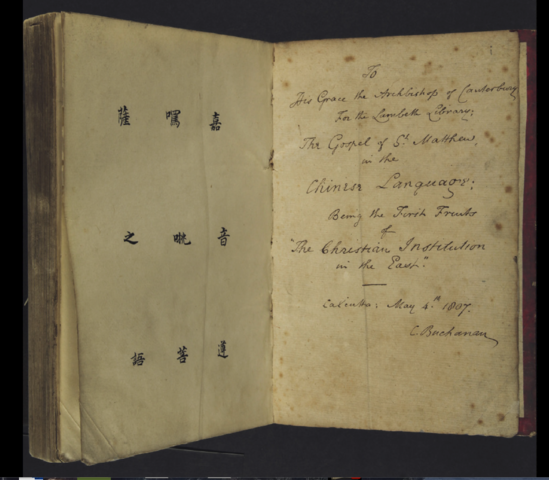 嘉音
菩
薩之語
To
His Grace the Archbishop of Canterbury
For the Lambeth Library;
The Gospel of St Matthew,
in the
Chinese Language;
Being the First Fruits
of
"The Christian Institution
in the East."
Calcutta: May 4th 1807.
C Buchanan